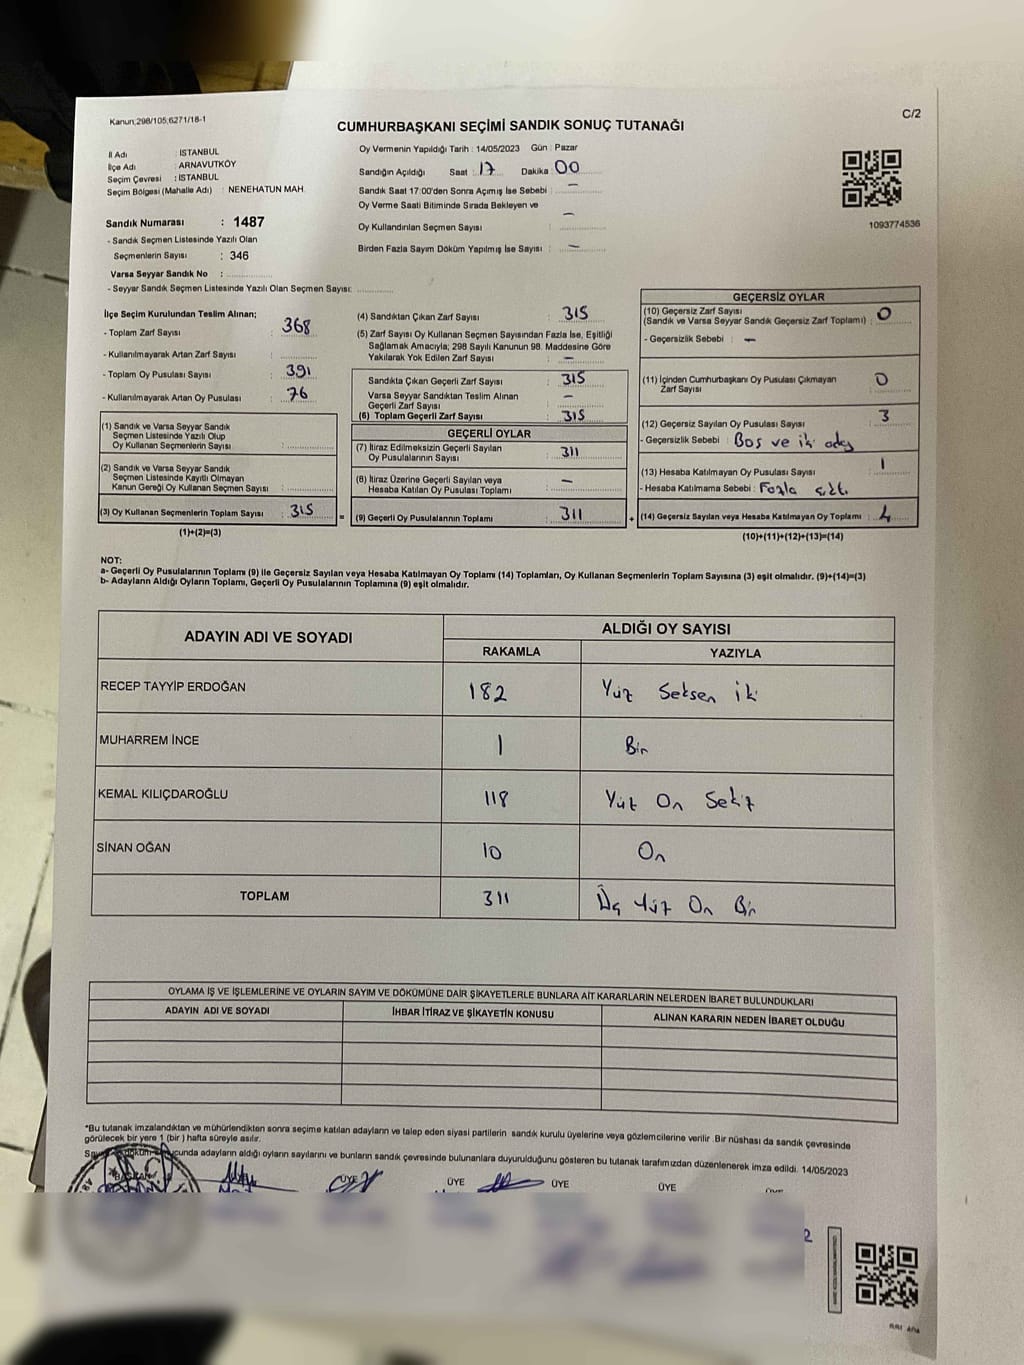 Kanun;298/105;6271/18-1
C/2
CUMHURBAŞKANI SEÇİMİ SANDIK SONUÇ TUTANAĞI
İl Adı : İSTANBUL
İlçe Adı : ARNAVUTKÖY
Seçim Çevresi : İSTANBUL
Seçim Bölgesi (Mahalle Adı) : NENEHATUN MAH.
Sandık Numarası : 1487
- Sandık Seçmen Listesinde Yazılı Olan
Seçmenlerin Sayısı : 346
Varsa Seyyar Sandık No :
- Seyyar Sandık Seçmen Listesinde Yazılı Olan Seçmen Sayısı:
Oy Vermenin Yapıldığı Tarih : 14/05/2023 Gün : Pazar
Sandığın Açıldığı Saat : 17 Dakika : 00
Sandık Saat 17:00'den Sonra Açımış İse Sebebi : —
Oy Verme Saati Bitiminde Sırada Bekleyen ve
Oy Kullandırılan Seçmen Sayısı : —
Birden Fazla Sayım Döküm Yapılmış İse Sayısı : —
1093774536
İlçe Seçim Kurulundan Teslim Alınan;
- Toplam Zarf Sayısı : 368
- Kullanılmayarak Artan Zarf Sayısı :
- Toplam Oy Pusulası Sayısı : 391
- Kullanılmayarak Artan Oy Pusulası : 76
(1) Sandık ve Varsa Seyyar Sandık
Seçmen Listesinde Yazılı Olup
Oy Kullanan Seçmenlerin Sayısı :
(2) Sandık ve Varsa Seyyar Sandık
Seçmen Listesinde Kayıtlı Olmayan
Kanun Gereği Oy Kullanan Seçmen Sayısı :
(3) Oy Kullanan Seçmenlerin Toplam Sayısı : 315
(1)+(2)=(3)
(4) Sandıktan Çıkan Zarf Sayısı : 315
(5) Zarf Sayısı Oy Kullanan Seçmen Sayısından Fazla İse, Eşitliği
Sağlamak Amacıyla; 298 Sayılı Kanunun 98. Maddesine Göre
Yakılarak Yok Edilen Zarf Sayısı : —
Sandıkta Çıkan Geçerli Zarf Sayısı : 315
Varsa Seyyar Sandıktan Teslim Alınan
Geçerli Zarf Sayısı : —
(6) Toplam Geçerli Zarf Sayısı : 315
GEÇERLİ OYLAR
(7) İtiraz Edilmeksizin Geçerli Sayılan
Oy Pusulalarının Sayısı : 311
(8) İtiraz Üzerine Geçerli Sayılan veya
Hesaba Katılan Oy Pusulası Toplamı : —
= (9) Geçerli Oy Pusulalarının Toplamı : 311 +
GEÇERSİZ OYLAR
(10) Geçersiz Zarf Sayısı
(Sandık ve Varsa Seyyar Sandık Geçersiz Zarf Toplamı) : 0
- Geçersizlik Sebebi : —
(11) İçinden Cumhurbaşkanı Oy Pusulası Çıkmayan
Zarf Sayısı : 0
(12) Geçersiz Sayılan Oy Pusulası Sayısı : 3
- Geçersizlik Sebebi : Boş ve iki aday
(13) Hesaba Katılmayan Oy Pusulası Sayısı : 1
- Hesaba Katılmama Sebebi : Fazla çıktı
(14) Geçersiz Sayılan veya Hesaba Katılmayan Oy Toplamı : 4
(10)+(11)+(12)+(13)=(14)
NOT:
a- Geçerli Oy Pusulalarının Toplamı (9) ile Geçersiz Sayılan veya Hesaba Katılmayan Oy Toplamı (14) Toplamları, Oy Kullanan Seçmenlerin Toplam Sayısına (3) eşit olmalıdır. (9)+(14)=(3)
b- Adayların Aldığı Oyların Toplamı, Geçerli Oy Pusulalarının Toplamına (9) eşit olmalıdır.
ADAYIN ADI VE SOYADI
ALDIĞI OY SAYISI
RAKAMLA YAZIYLA
RECEP TAYYİP ERDOĞAN 182 Yüz Seksen iki
MUHARREM İNCE 1 Bir
KEMAL KILIÇDAROĞLU 118 Yüz On Sekiz
SİNAN OĞAN 10 On
TOPLAM 311 Üç Yüz On Bir
OYLAMA İŞ VE İŞLEMLERİNE VE OYLARIN SAYIM VE DÖKÜMÜNE DAİR ŞİKAYETLERLE BUNLARA AİT KARARLARIN NELERDEN İBARET BULUNDUKLARI
ADAYIN ADI VE SOYADI İHBAR İTİRAZ VE ŞİKAYETİN KONUSU ALINAN KARARIN NEDEN İBARET OLDUĞU
*Bu tutanak imzalandıktan ve mühürlendikten sonra seçime katılan adayların ve talep eden siyasi partilerin sandık kurulu üyelerine veya gözlemcilerine verilir .Bir nüshası da sandık çevresinde
görülecek bir yere 1 (bir ) hafta süreyle asılır.
Sayım döküm sonucunda adayların aldığı oyların sayılarını ve bunların sandık çevresinde bulunanlara duyurulduğunu gösteren bu tutanak tarafımızdan düzenlenerek imza edildi. 14/05/2023
BAŞKAN ÜYE ÜYE ÜYE ÜYE